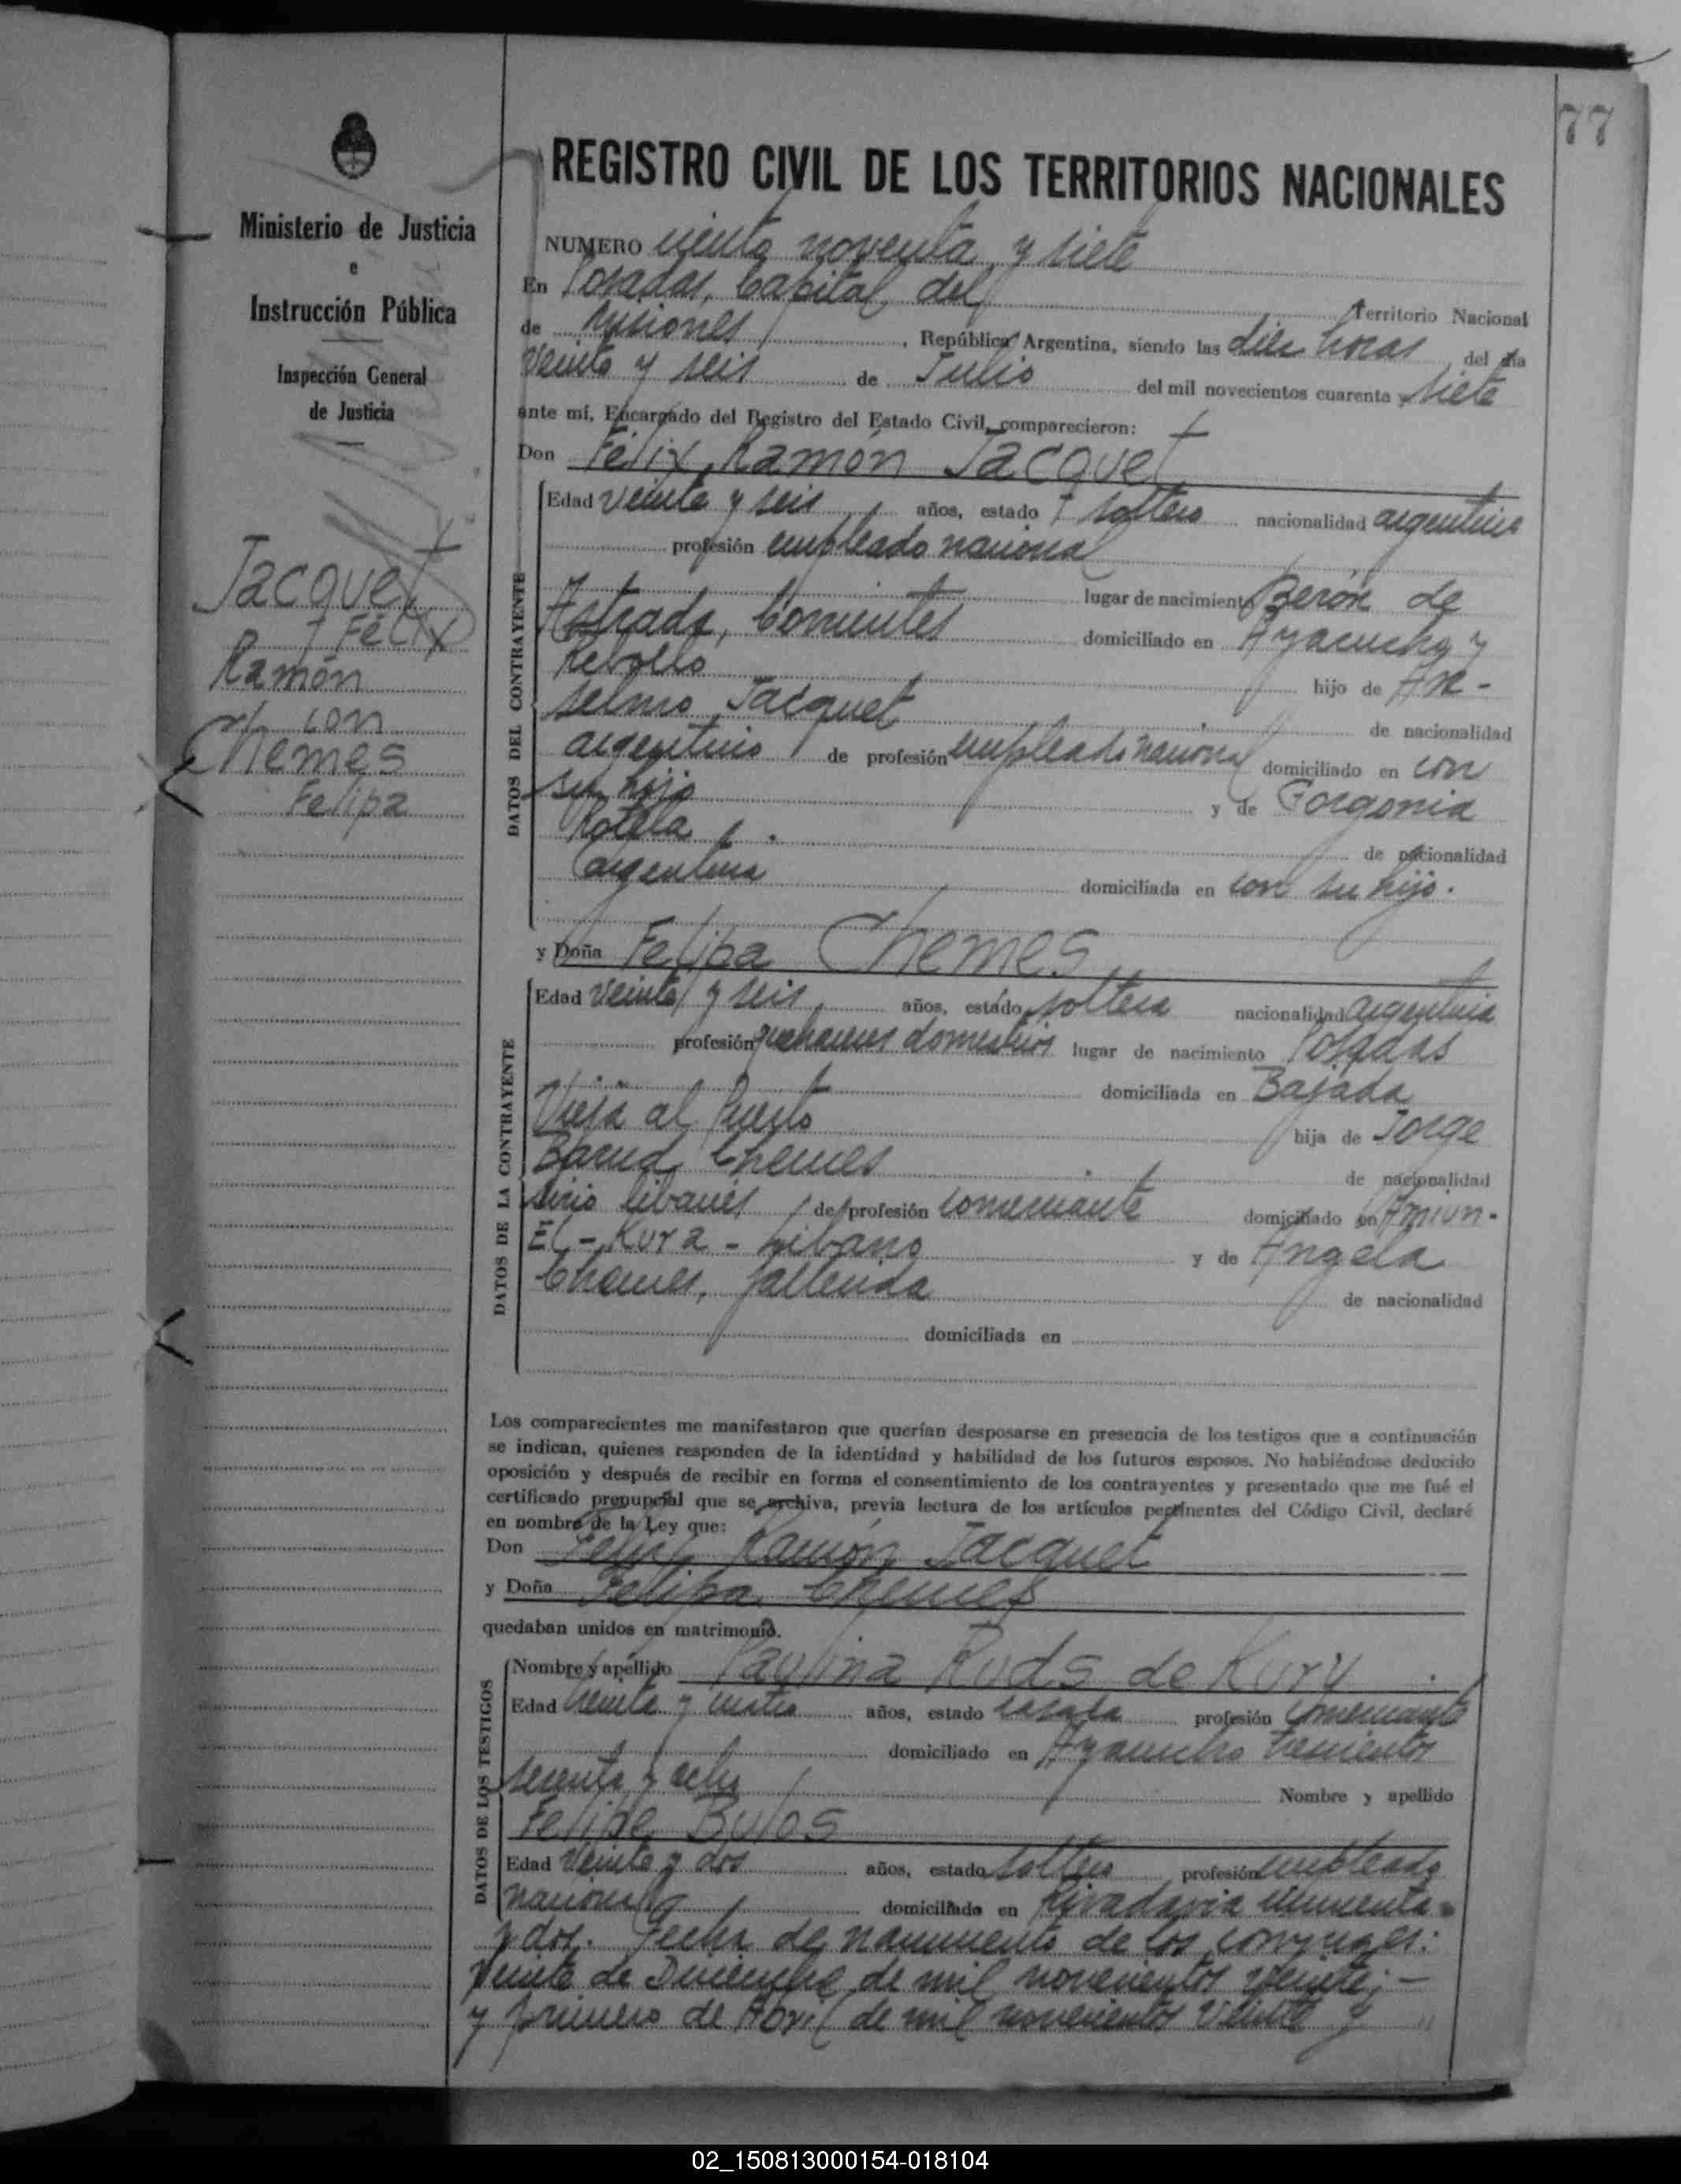 77
Ministerio de Justicia
e
Instrucción Pública
Inspección General
de Justicia
Jacquet
Félix
Ramón
con
Chemes
Felipa
REGISTRO CIVIL DE LOS TERRITORIOS NACIONALES
NUMERO ciento noventa y siete
En Posadas, Capital del Territorio Nacional
de Misiones, República Argentina, siendo las diez horas del día
veinte y seis de Julio del mil novecientos cuarenta y siete
ante mí, Encargado del Registro del Estado Civil, comparecieron:
Don Félix Ramón Jacquet
DATOS DEL CONTRAYENTE
Edad veinte y seis años, estado soltero nacionalidad argentino
profesión empleado nacional
lugar de nacimiento Berón de
Astrada, Corrientes domiciliado en Ayacucho y
Rebollo hijo de An-
selmo Jacquet de nacionalidad
argentino de profesión empleado nacional domiciliado en con
su hijo y de Gorgonia
Rotela de nacionalidad
argentina domiciliada en con su hijo.
y Doña Felipa Chemes
DATOS DE LA CONTRAYENTE
Edad veinte y seis años, estado soltera nacionalidad argentina
profesión quehaceres domesticos lugar de nacimiento Posadas
domiciliada en Bajada
Vieja al Puerto hija de Jorge
Chemes de nacionalidad
sirio libanés de profesión comerciante domiciliado en Amiun-
El-Kura-Libano y de Angela
Chemes, fallecida de nacionalidad
domiciliada en
Los comparecientes me manifestaron que querían desposarse en presencia de los testigos que a continuación
se indican, quienes responden de la identidad y habilidad de los futuros esposos. No habiéndose deducido
oposición y después de recibir en forma el consentimiento de los contrayentes y presentado que me fué el
certificado prenupcial que se archiva, previa lectura de los artículos pertinentes del Código Civil, declaré
en nombre de la Ley que:
Don Felix Ramón Jacquet
y Doña Felipa Chemes
quedaban unidos en matrimonio.
DATOS DE LOS TESTIGOS
Nombre y apellido Paulina Ruds de Kury
Edad treinta y cuatro años, estado casada profesión comerciante
domiciliado en Ayacucho trescientos
sesenta y ocho Nombre y apellido
Felipe Bulos
Edad veinte y dos años, estado soltero profesión empleado
nacional domiciliado en Rivadavia cincuenta
y dos. Fecha de nacimiento de los conyuges:
veinte de Diciembre de mil novecientos veinte; -
y primero de Abril de mil novecientos veinte y
02_150813000154-018104